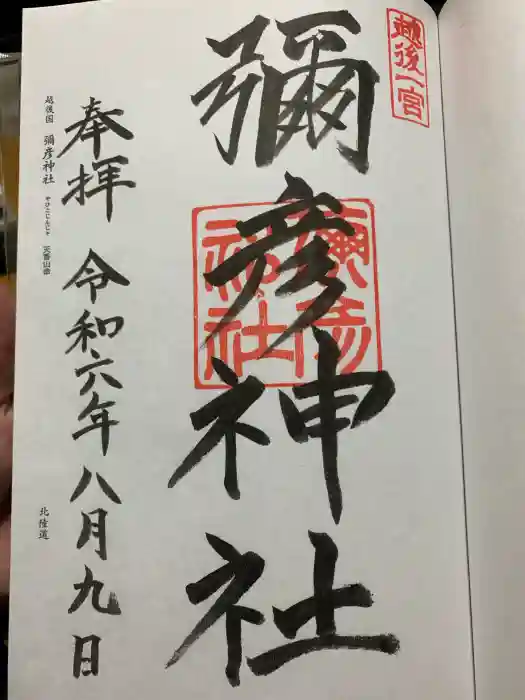 越後一宮
彌彦神社
彌彦神社
奉拝 令和六年八月九日
越後国 彌彦神社 やひこじんじゃ 天香山命
北陸道